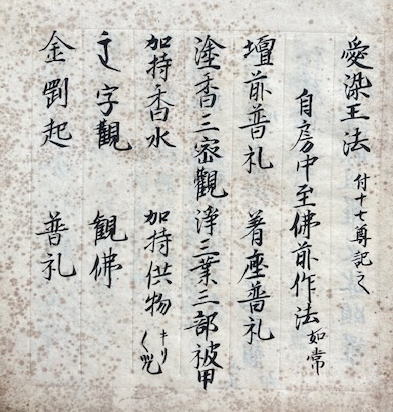 愛染王法 付十七尊記之
自房中至佛前作法 如常
壇前普礼 着座普礼
塗香三密觀 淨三業三部被甲
加持香水 加持供物 キリ〱咒
字觀 観佛
金剛起 普礼